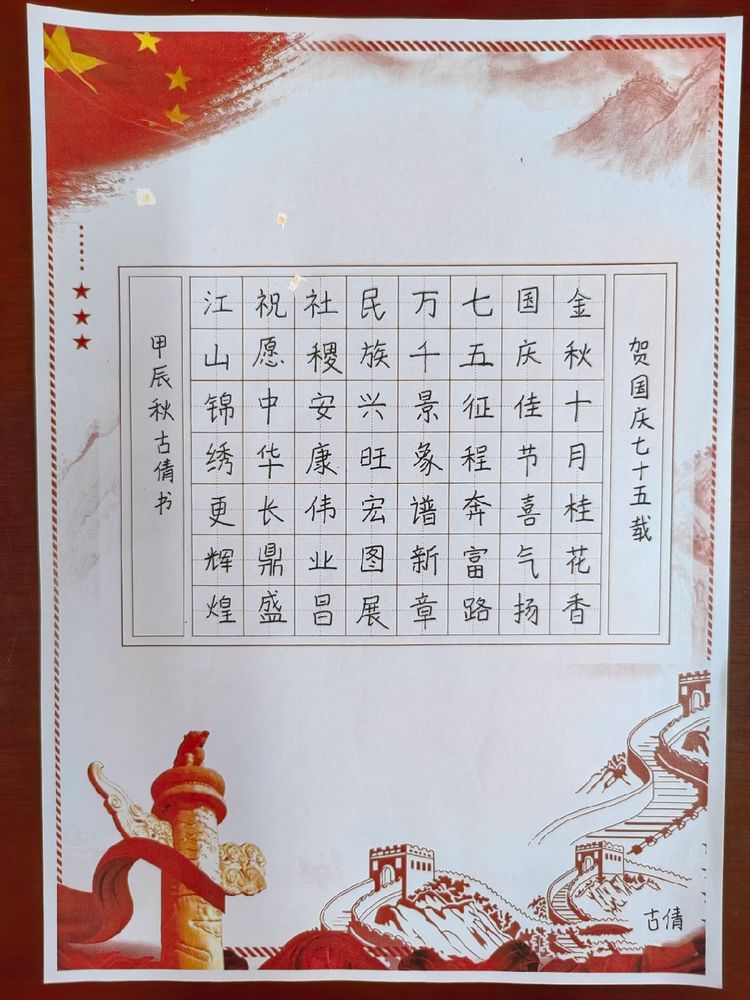 贺国庆七十五载
金秋十月桂花香
国庆佳节喜气扬
七五征程奔富路
万千景象谱新章
民族兴旺宏图展
社稷安康伟业昌
祝愿中华长鼎盛
江山锦绣更辉煌
甲辰秋古倩书
古倩